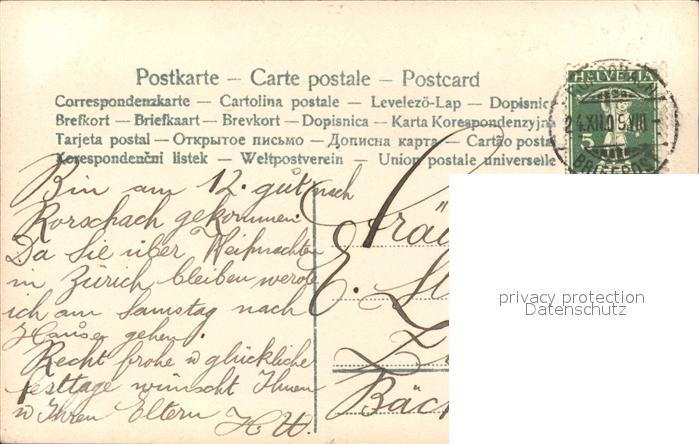 Postkarte – Carte postale – Postcard
Correspondenzkarte – Cartolina postale – Levelező-Lap – Dopisnic
Brefkort – Briefkaart – Brevkort – Dopisnica – Karta Korespondenzyjn
Tarjeta postal – Открытое письмо – Дописна карта – Cartão posta
Korespondenční listek – Weltpostverein – Union postale universelle
HELVETIA
24.XII.09. VIII
5
BRIEFPOST
Bin am 12. gut nach
Rorschach gekommen.
Da Sie über Weihnachten
in Zürich bleiben werde
ich am Samstag nach
Hause gehen.
Recht frohe u glückliche
Festtage wünscht Ihnen
u Ihren Eltern H. W.
Fräu
E. St
Z
Bäc
privacy protection
Datenschutz